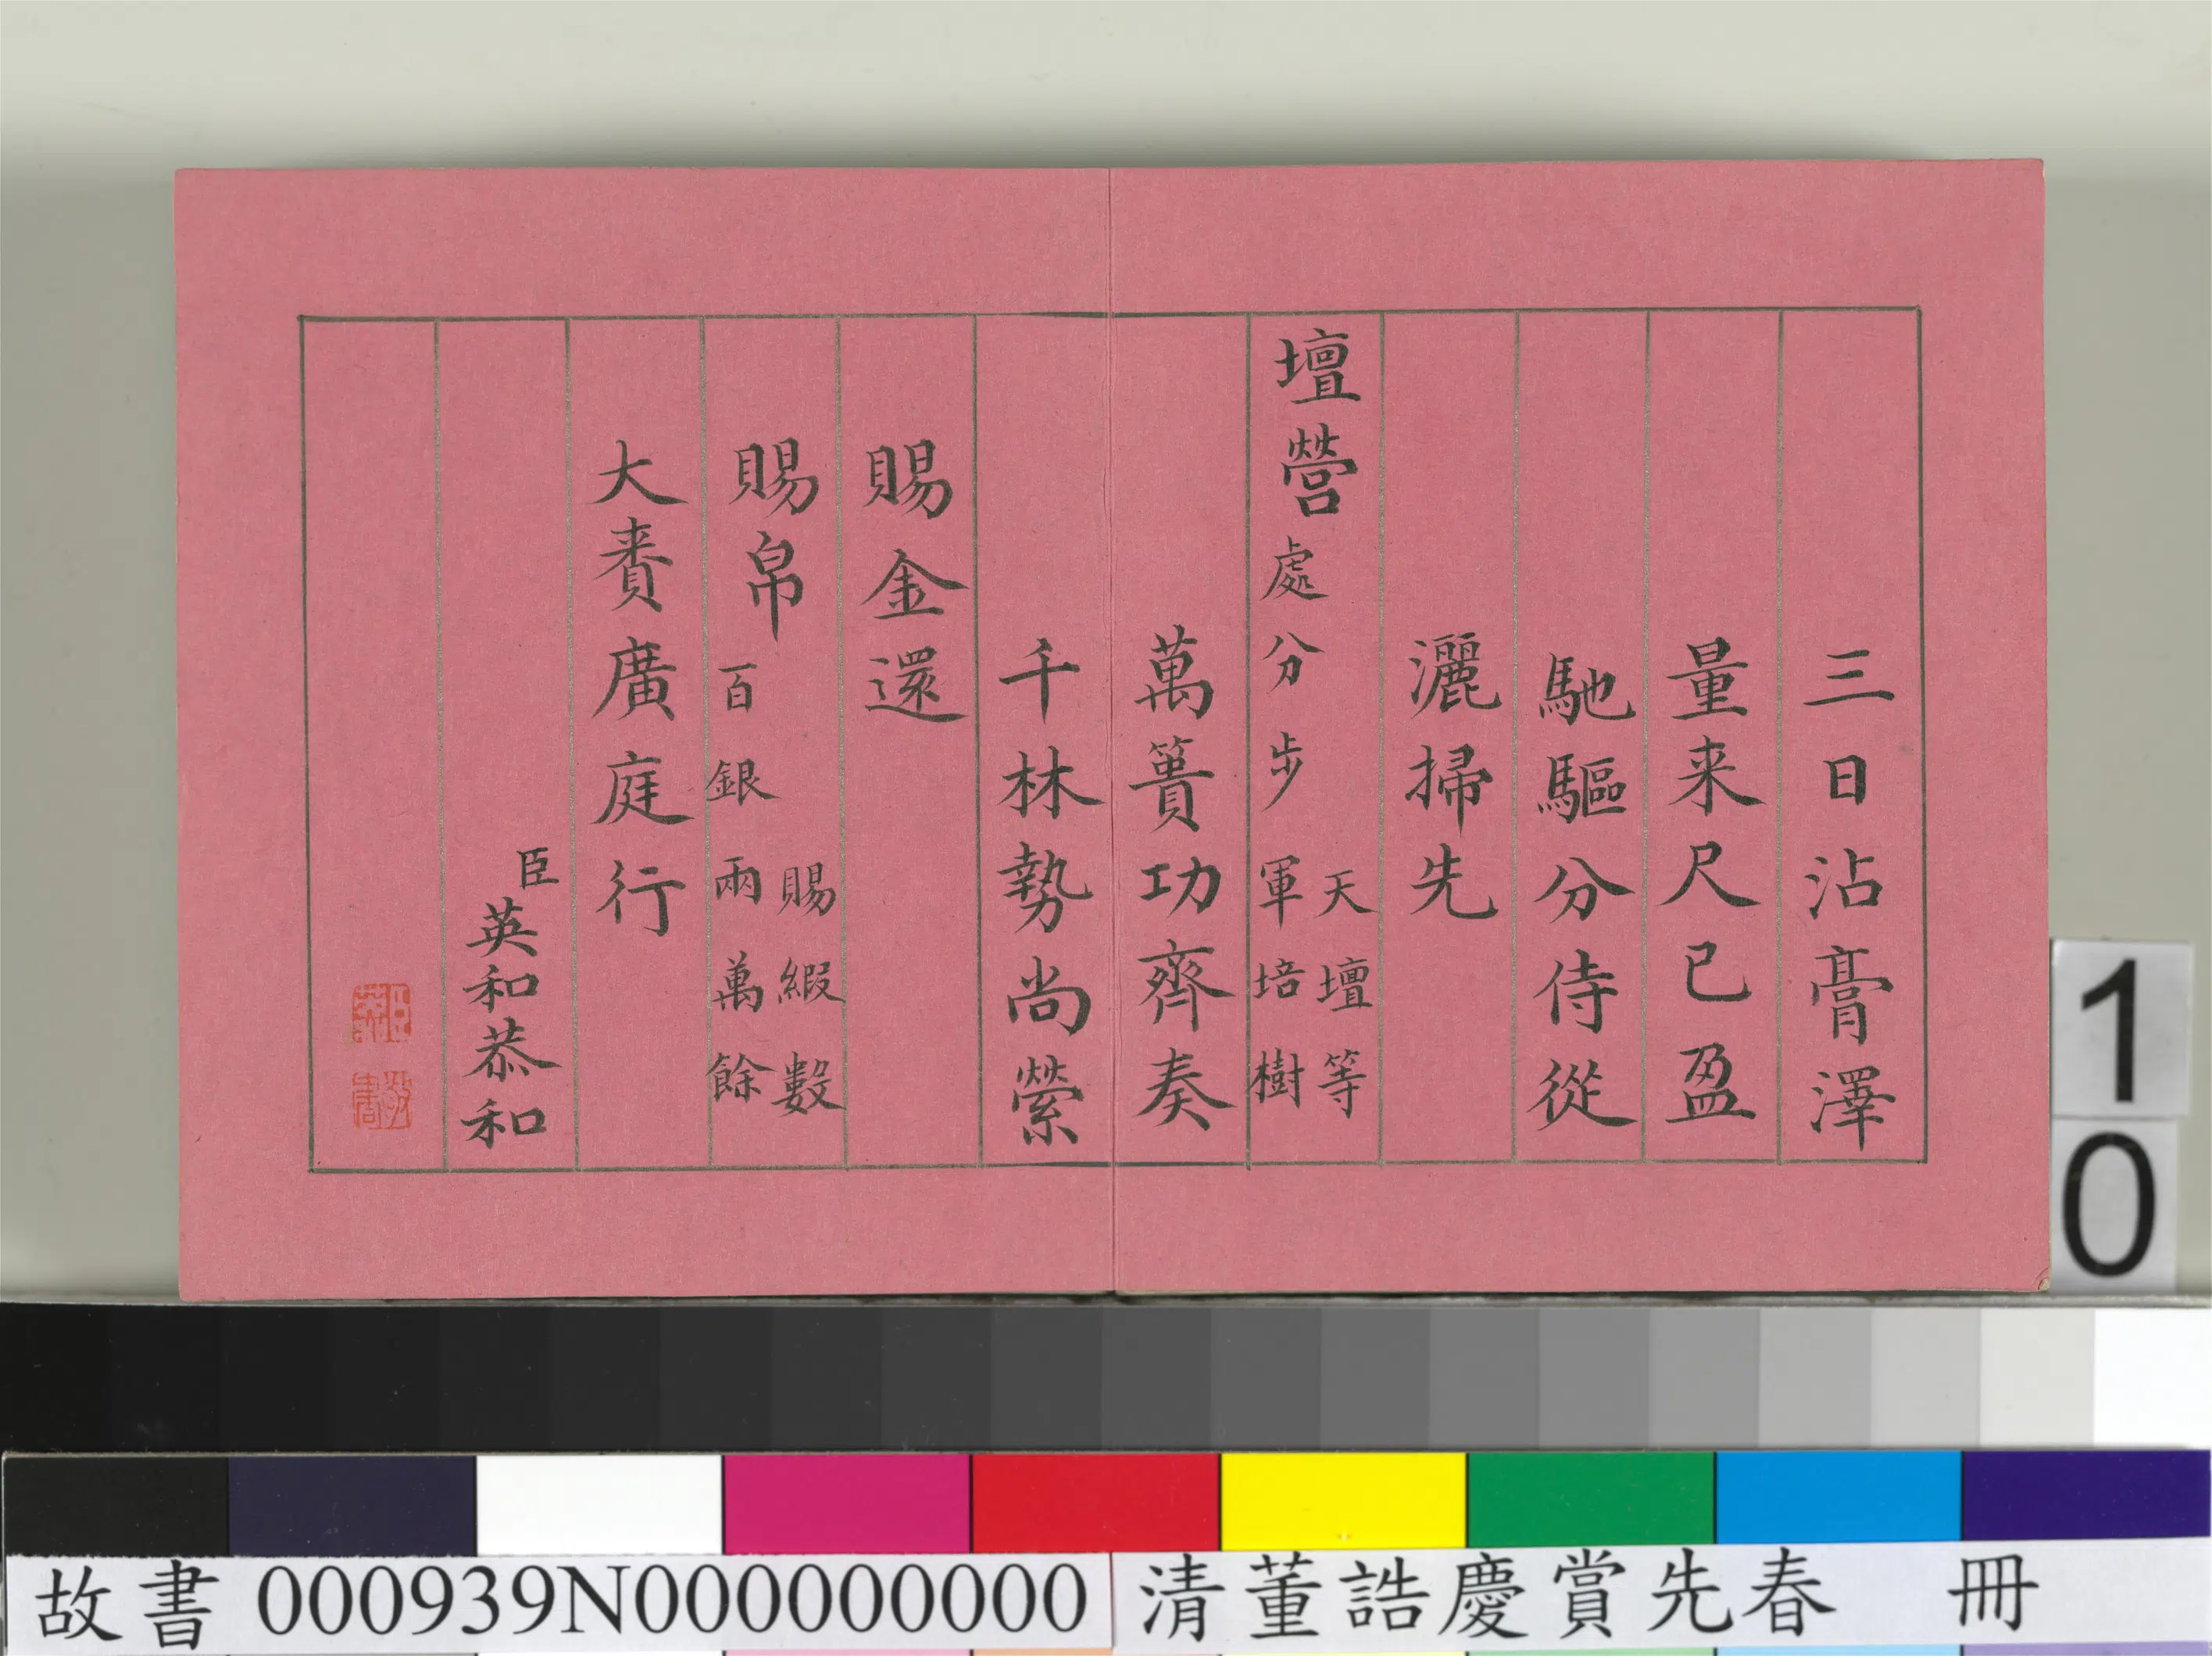 三日沾膏澤
量来尺已盈
馳驅分侍從
灑掃先
壇營處分步
天壇等
軍培樹
萬簣功齊奏
千林勢尚縈
賜金還
賜帛
賜緞數
百銀兩萬餘
大賚廣庭行
臣英和恭和
臣英
敬書
10
故書 000939N000000000 清董誥慶賞先春 冊